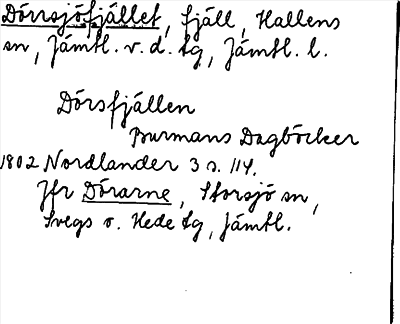 Dörrsjöfjället, fjäll, Hallens
sn, Jämtl. v. d. tg, Jämtl. l.
Dörsfjällen
Burmans Dagböcker
1802 Nordlander 3 s. 114.
Jfr Dörarne, Storsjö sn,
Svegs o. Hede tg, Jämtl.